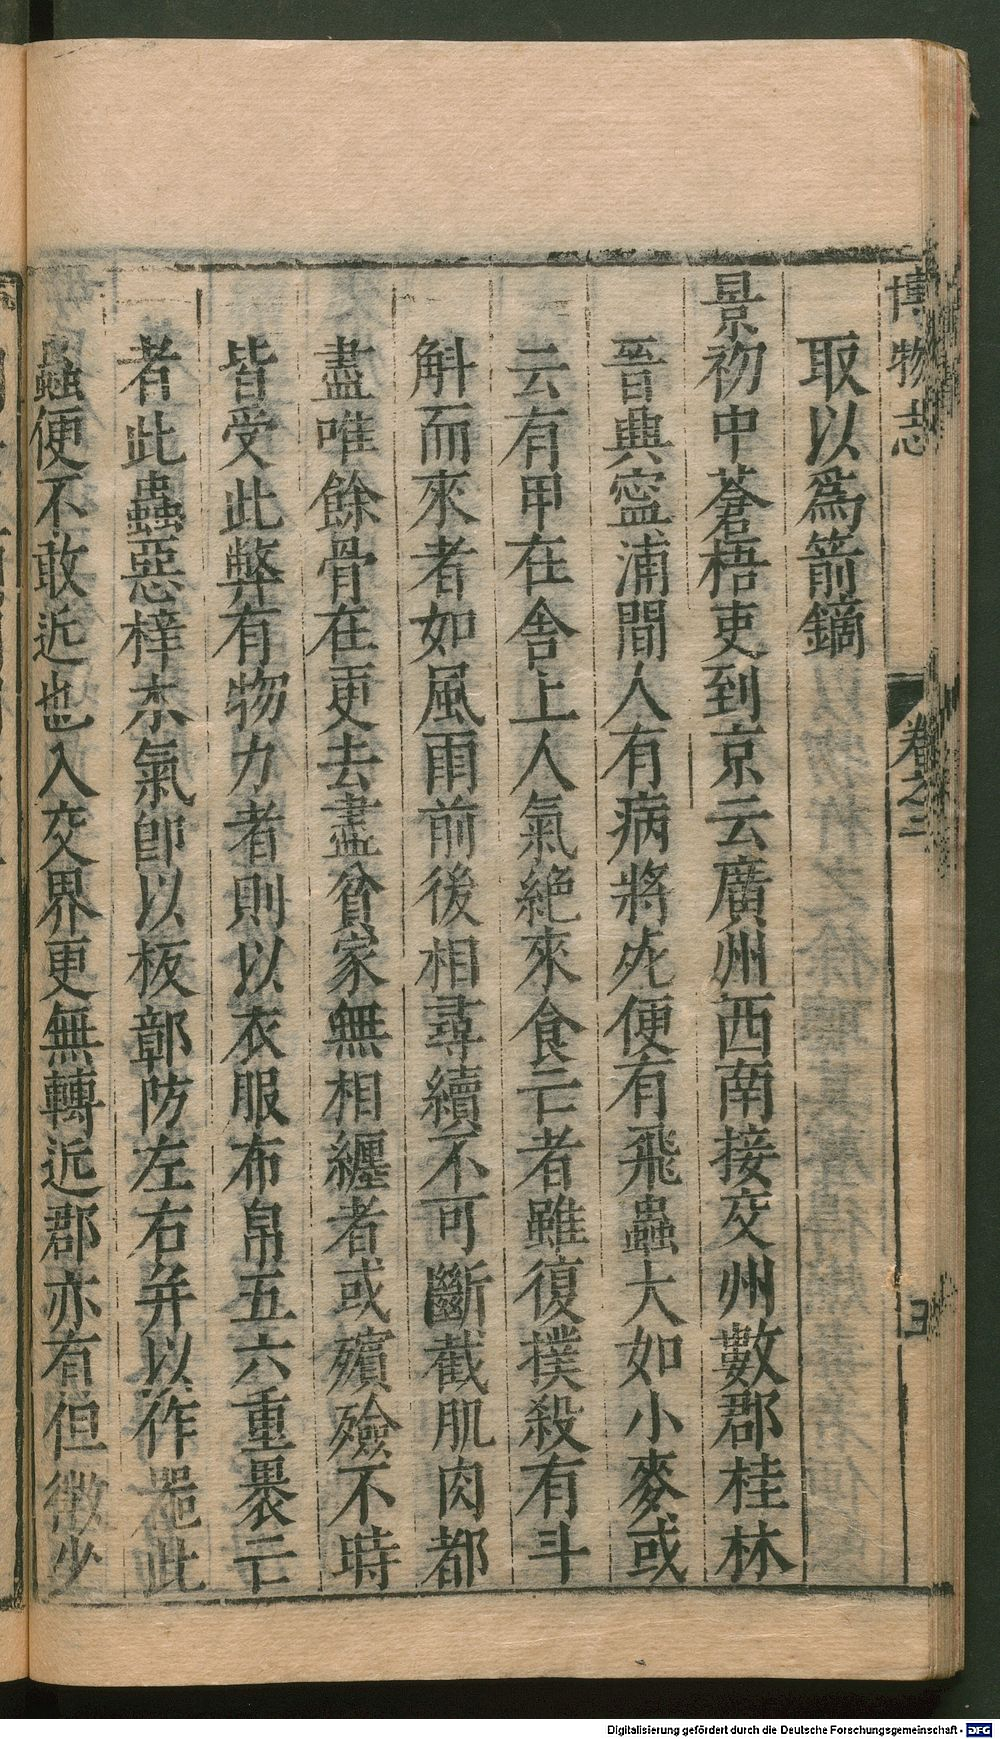 博物志
卷之二
取以爲箭鏑
景初中蒼梧吏到京云廣州西南接交州數郡桂林
晉興寍浦間人有病將死便有飛蟲大如小麥或
云有甲在舍上人氣絶來食亡者雖復撲殺有斗
斛而來者如風雨前後相尋續不可斷截肌肉都
盡唯餘骨在更去盡貧家無相纏者或殯殮不時
皆受此弊有物力者則以衣服布帛五六重裹亡
者此蟲惡梓木氣卽以板鄣防左右并以作器此
蟲便不敢近也入交界更無轉近郡亦有但微少
Digitalisierung gefördert durch die Deutsche Forschungsgemeinschaft - DFG